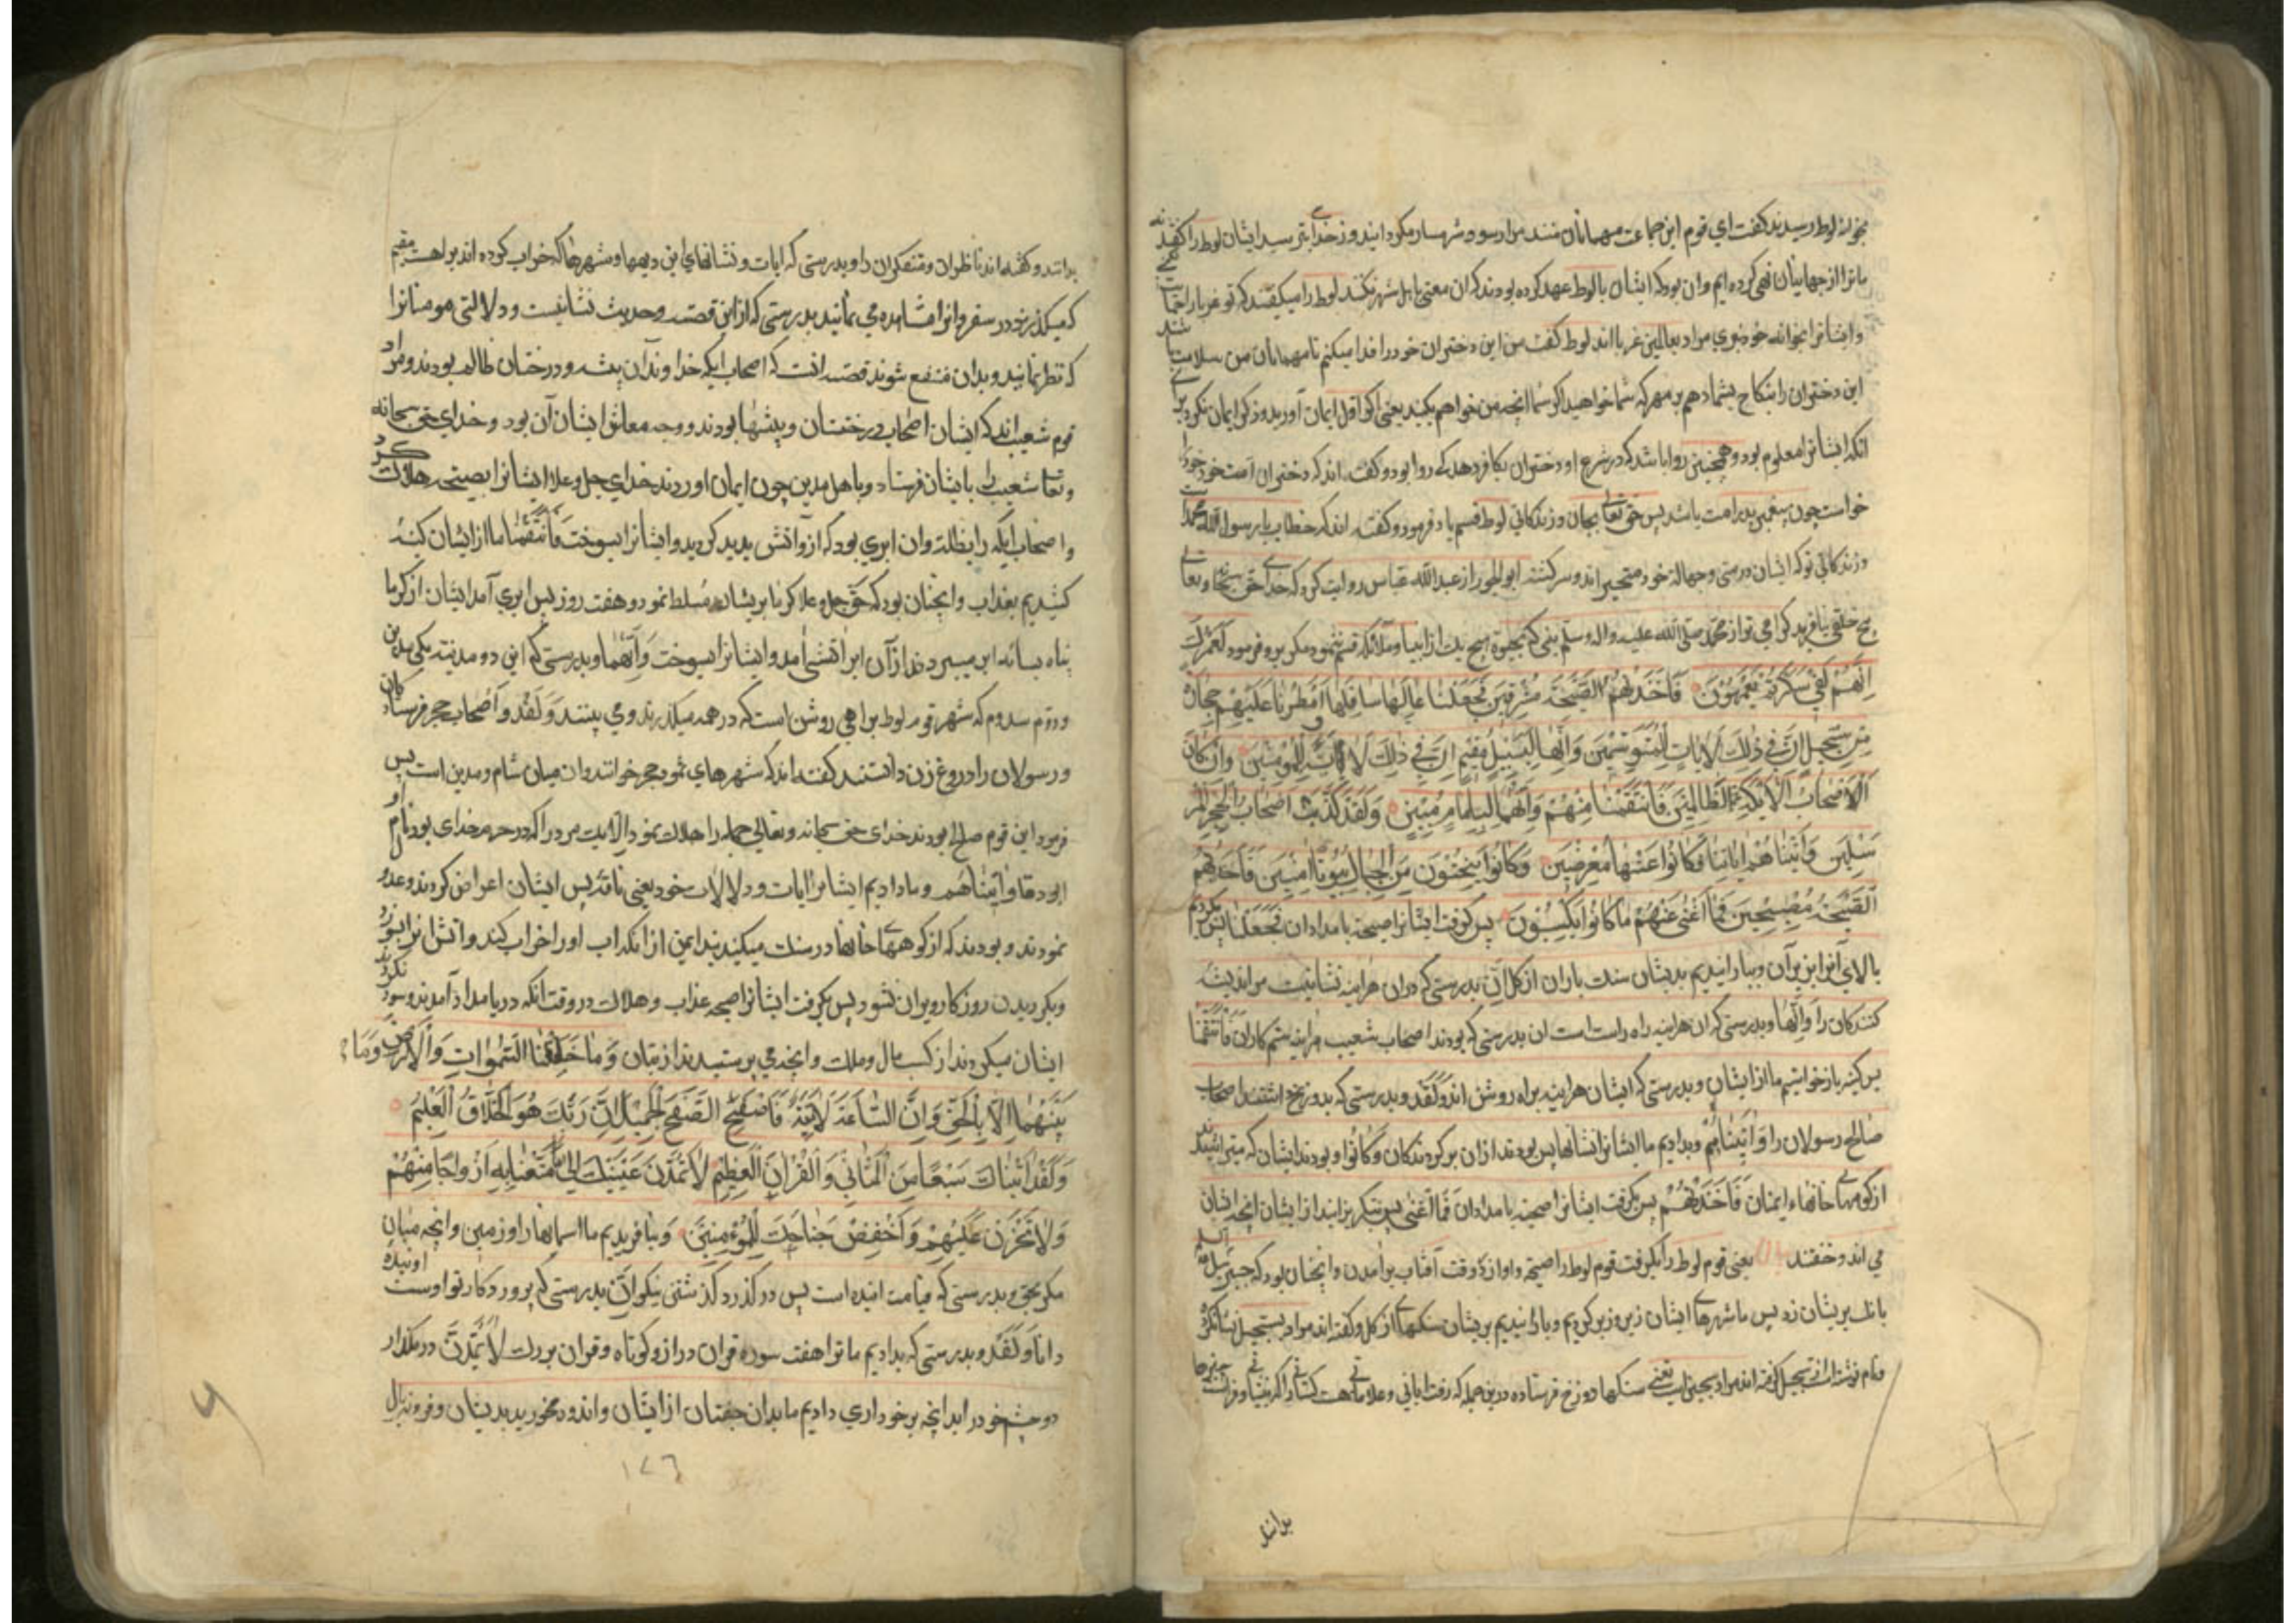 بخانه لوط رسیدند گفت ای قوم این جماعت مهمانان منند مرا رسوا و شرمسار مگردانید و از خدای بترسید ایشان لوط را گفتند نه
ما ترا از جهانیان نهی کرده ایم و ان بود که ایشان با لوط عهد کرده بودند که ان معنی با اهل شهر نکنند لوط را میگفتند که تو غربا را حمایت
و ایشانرا بخوانه خود نبری مراد بعالمین غربا اند لوط گفت من این دختران خود را فدا میکنم تا مهمانان من سلامت باشند
این دختران را بنکاح بشما دهم بر مهر که شما خواهید اگر شما انچه من خواهم بکنید یعنی اگر اول ایمان آورید و ذکر ایمان نکرد برای
انکه ایشانرا معلوم بود و همچنین روا باشد که در شرع او دختران بکافر دهد که روا بود و گفته اند که دختران امت خود را
خواست چون پیغمبر پدر امت باشد پس حق تعالی بجان و زندگانی لوط قسم یاد فرمود و گفته اند که خطاب با رسول الله محمد است
و زندگانی تو که ایشان در مستی و جهالة خود متحیر اند و سرگشته ابو الجوزا از عبد الله عباس روایت کرد که خدای حق سبحانه و تعالی
هیچ خلقی نیافرید گرامی تر از محمد صلی الله علیه واله وسلم بنی که بحیوة هیچ یک از انبیا و ملائکه قسم ننمود مگر بدو فرمود لعمرک
اِنَّهُمْ لَفِی سَکْرَتِهِمْ یَعْمَهُوْنَ فَاَخَذَتْهُمُ الصَّیْحَةُ مُشْرِقِیْنَ فَجَعَلْنَا عَالِیَهَا سَافِلَهَا وَاَمْطَرْنَا عَلَیْهِمْ حِجَارَةً
مِنْ سِجِّیْلٍ اِنَّ فِی ذٰلِکَ لَاٰیَاتٍ لِلْمُتَوَسِّمِیْنَ وَاِنَّهَا لَبِسَبِیْلٍ مُقِیْمٍ اِنَّ فِی ذٰلِکَ لَاٰیَةً لِلْمُؤْمِنِیْنَ وَاِنْ کَانَ
اَصْحَابُ الْاَیْکَةِ لَظَالِمِیْنَ فَانْتَقَمْنَا مِنْهُمْ وَاِنَّهُمَا لَبِاِمَامٍ مُبِیْنٍ وَلَقَدْ کَذَّبَ اَصْحَابُ الْحِجْرِ الْمُرْ
سَلِیْنَ وَاٰتَیْنَاهُمْ اٰیَاتِنَا فَکَانُوْا عَنْهَا مُعْرِضِیْنَ وَکَانُوْا یَنْحِتُوْنَ مِنَ الْجِبَالِ بُیُوْتًا اٰمِنِیْنَ فَاَخَذَتْهُمُ
الصَّیْحَةُ مُصْبِحِیْنَ فَمَا اَغْنٰی عَنْهُمْ مَا کَانُوْا یَکْسِبُوْنَ پس گرفت ایشانرا صیحه بامدادان فَجَعَلْنَا پس بکردیم
بالای آنرا زیر آن و ببارانیدیم بدیشان سنگ باران از گل اِنَّ بدرستی که دران هراینه نشانیست مر اندیشه
کنندگان را وَاِنَّهَا و بدرستی که ان هراینه راه راست است ان بدرستی که بودند اصحاب شعیب هراینه ستم کاران فَانْتَقَمْنَا
پس کینه باز خواستیم ما از ایشان و بدرستی که ایشان هراینه براه روشن اند وَلَقَدْ و بدرستی که بدروغ داشتند اصحاب
صالح رسولان را وَاٰتَیْنَاهُمْ و بدادیم ما ایشانرا نشانها پس بودند ازان برگردندگان وَکَانُوْا و بودند ایشان که میتراشیدند
از کوهها خانهاء ایمنان فَاَخَذَتْهُمُ پس بگرفت ایشانرا صیحه بامدادان فَمَا اَغْنٰی پس بنگریزانید از ایشان انچه ایشان
می اندوختند یعنی قوم لوط را بگرفت قوم لوط را صیحه و اوازه وقت آفتاب برآمدن و انچنان بود که جبرئیل علیه السلم
بانک بریشان زد پس ما شهرهای ایشان زیر و زبر کردیم و بارانیدیم بریشان سنگهای از گل و گفته اند مراد بسجیل
برانند
بدانند و گفته اند ناظران و متفکران را و بدرستی که ایات و نشانهای این دیهها و شهرها که خراب کرده اند براهست مقیم
که میگذرند در سفر و انرا مشاهده می نمایند بدرستی که از این قصه و حدیث نشانیست و دلالتی مومنانرا
که نظر نمایند و بدان منتفع شوند قصه انست که اصحاب ایکه خداوندان بیشه و درختان ظالم بودند و مراد
قوم شعیب اند که ایشان اصحاب درختستان و بیشها بودند و وجه معاش ایشان آن بود و خدای حق سبحانه
و تعالی شعیب را بایشان فرستاد و باهل مدین چون ایمان اوردند خدای جل و علا ایشانرا بصیحه هلاک کرد
و اصحاب ایکه را بظلة و ان ابری بود که ازو اتش بدید گردید و ایشانرا بسوخت فَانْتَقَمْنَا ما از ایشان کینه
کشیدیم بعذاب و انچنان بود که حق جل و علا گرما بریشان مسلط نمود هفت روز پس ابری آمد ایشان از گرما
پناه بسائه ابر میبردند ازآن ابر اتشی آمد و ایشانرا بسوخت وَاِنَّهُمَا و بدرستی که این دو مدینه یکی مدین
و دوم سدوم که شهر قوم لوط براهی روشن است که در همه میگذرند و می بینند وَلَقَدْ و اَصْحاب حجر فرستادکان
و رسولان را دروغ زن داشتند گفته اند که شهرهای ثمود حجر خوانند و ان میان شام و مدین است پس
فرمود این قوم صالح بودند خدای حق سبحانه و تعالی جمله را هلاک نمود الا یک مرد را که در حرم خدای بود نام او
ابو رغال وَاٰتَیْنَاهُمْ و ما دادیم ایشانرا ایات و دلالات خود یعنی ناقه پس ایشان اعراض کردند و عدول
نمودند و بودند که از کوههاء خانها در سنگ میکندند ایمن از انکه اب او را خراب کند و اتش انرا بسوزد
و بگردیدن روزگار ویران نشود پس بگرفت ایشانرا صیحه عذاب و هلاک در وقت انکه در بامداد آمدند و سود نکرد
ایشان میکردند از کسب مال و ملک و انچه می پرستیدند از بتان وَمَا خَلَقْنَا السَّمٰوَاتِ وَالْاَرْضَ وَمَا
بَیْنَهُمَا اِلَّا بِالْحَقِّ وَاِنَّ السَّاعَةَ لَاٰتِیَةٌ فَاصْفَحِ الصَّفْحَ الْجَمِیْلَ اِنَّ رَبَّکَ هُوَ الْخَلَّاقُ الْعَلِیْمُ
وَلَقَدْ اٰتَیْنَاکَ سَبْعًا مِنَ الْمَثَانِی وَالْقُرْاٰنَ الْعَظِیْمَ لَا تَمُدَّنَّ عَیْنَیْکَ اِلٰی مَا مَتَّعْنَا بِهِ اَزْوَاجًا مِنْهُمْ
وَلَا تَحْزَنْ عَلَیْهِمْ وَاخْفِضْ جَنَاحَکَ لِلْمُؤْمِنِیْنَ و نیافریدیم ما اسمانها را و زمین و انچه میان
مگر بحق و بدرستی که قیامت اینده است پس درگذر درگذشتنی نیکو اِنَّ بدرستی که پروردگار تو اوست افریننده
دانا وَلَقَدْ و بدرستی که بدادیم ما ترا هفت سوره قران دراز و کوتاه و قران بزرگ لَا تَمُدَّنَّ در مگذار
دو چشم خود را بدانچه برخورداری دادیم ما بدان جفتان از ایشان و اندوه مخورید بدیشان و فرونه بال
١٧٦